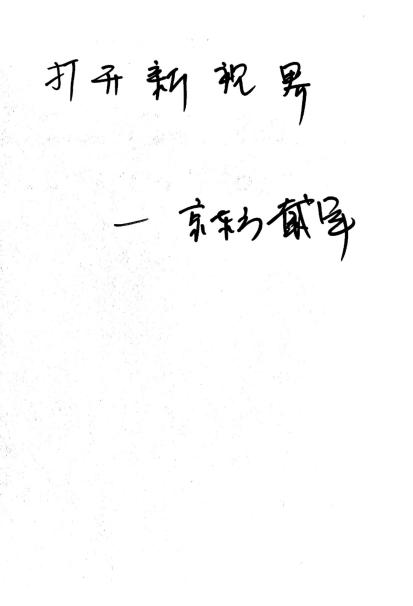 打开新视界
— 京东方